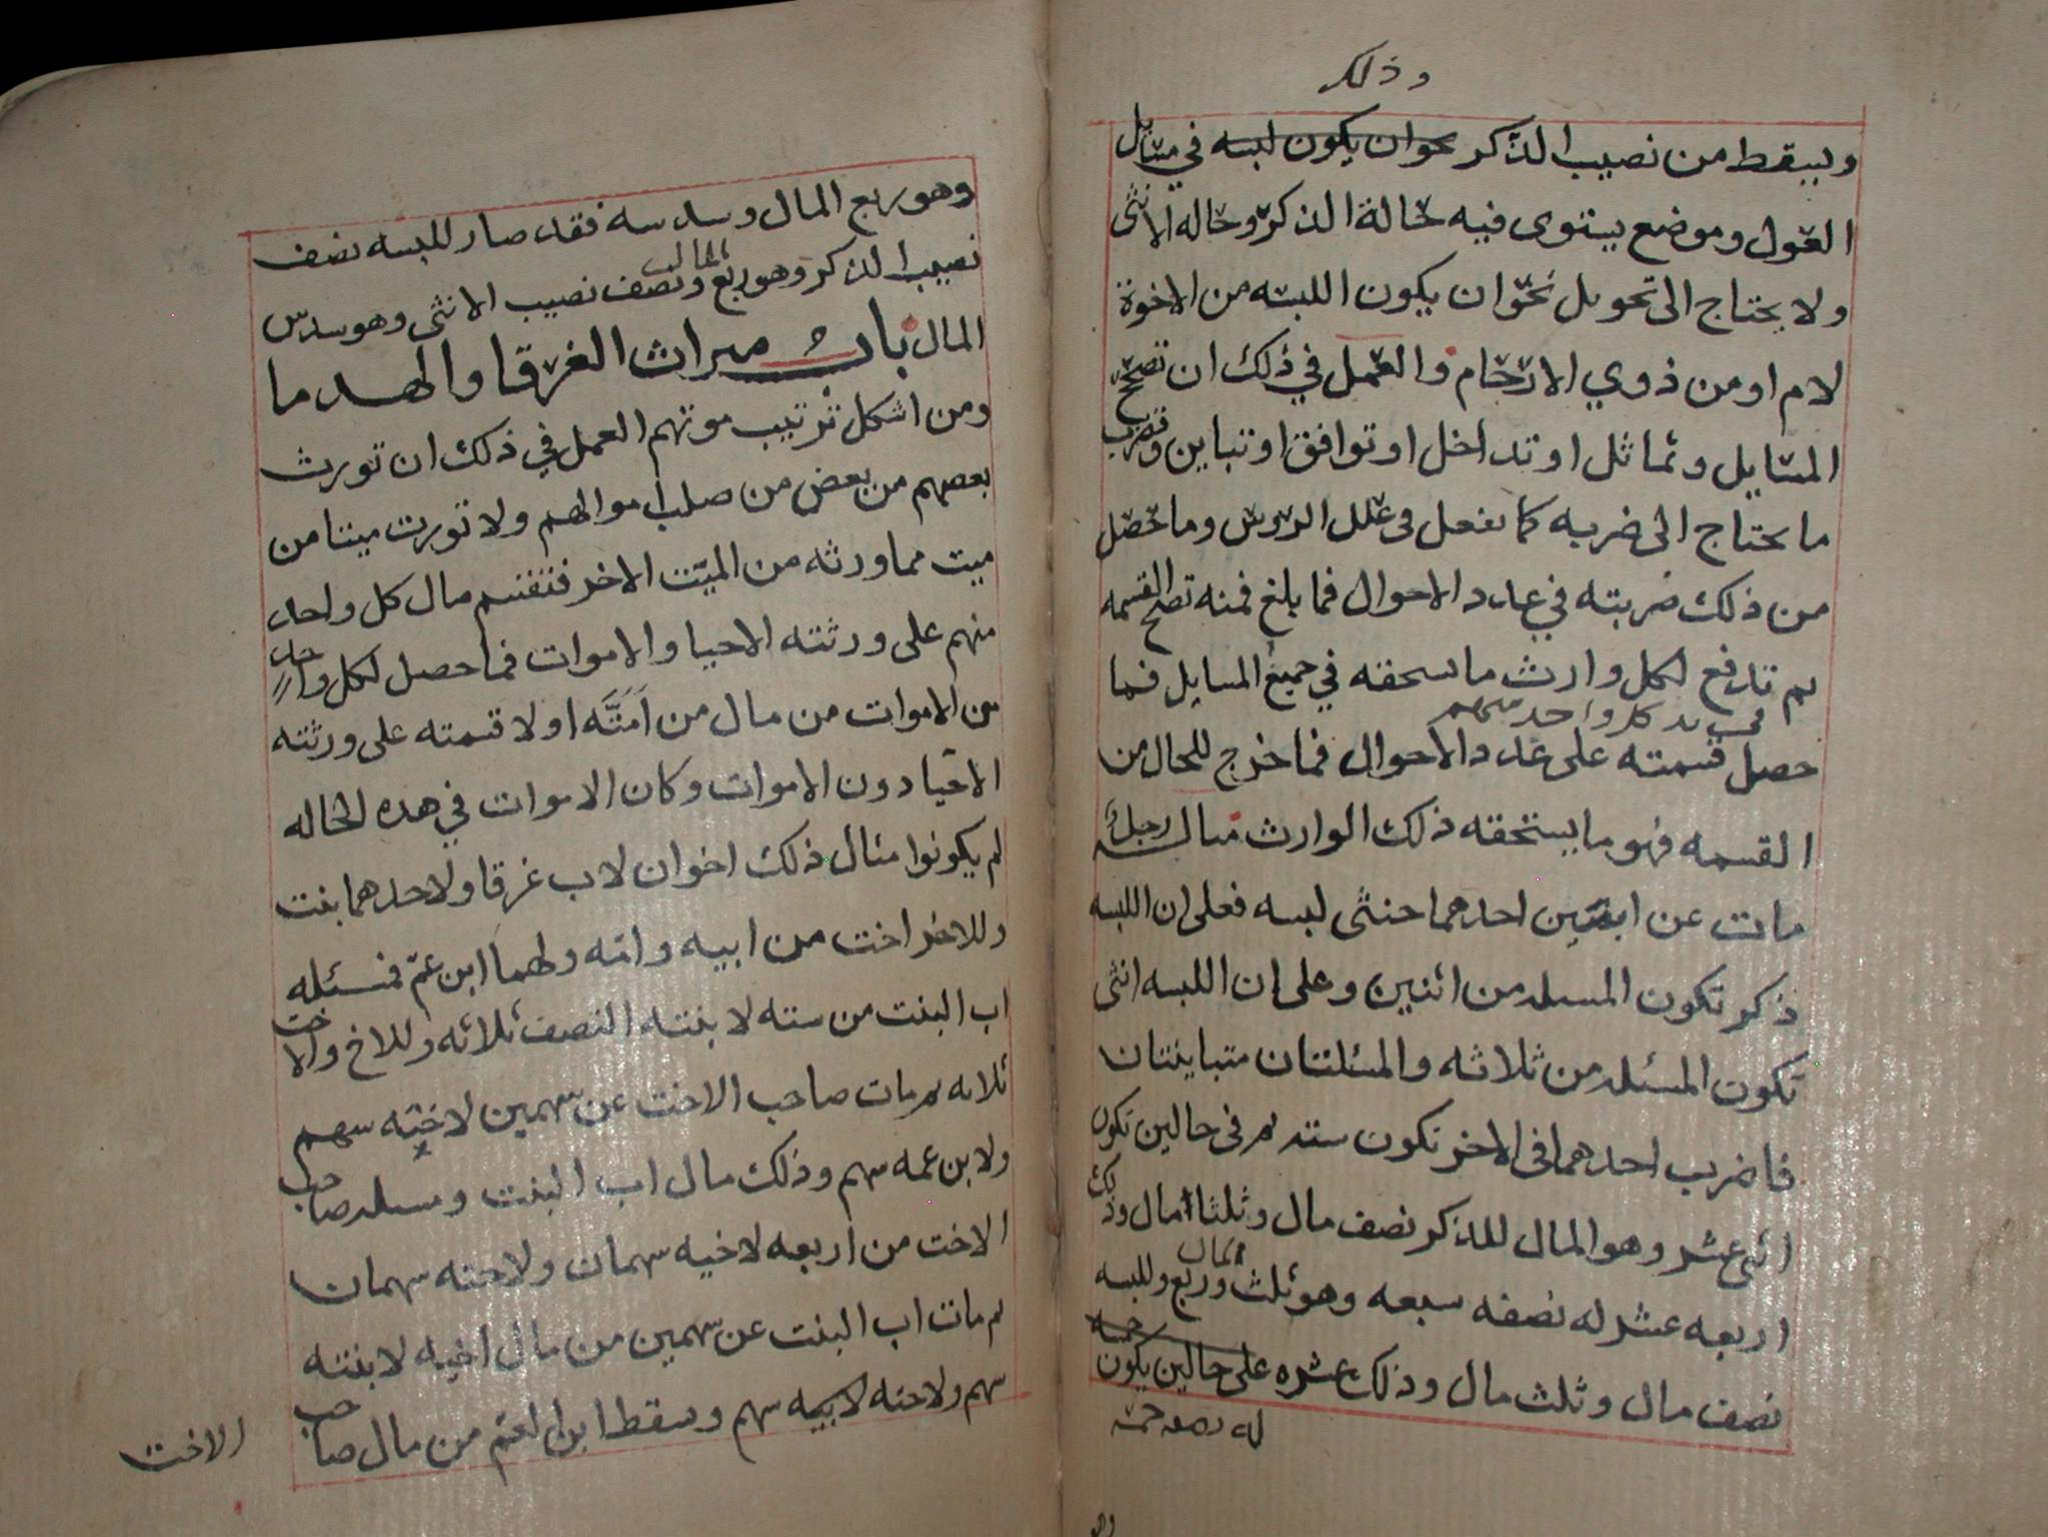 وذلك
ويسقط من نصيب الذكر نحو ان يكون لبسه في مسايل
العول وموضع يستوى فيه حالة الذكر وحاله الانثى
ولا يحتاج الى تحويل نحو ان يكون اللبسه من الاخوة
لام او من ذوي الارحام والعمل في ذلك ان تصحح
المسايل وتماثل او تداخل او توافق او تباين وتضرب
ما يحتاج الى ضربه كما تفعل في علل الروس وما حصل
من ذلك ضربته في عدد الاحوال فما بلغ فمنه تصح القسمه
ثم تدفع لكل وارث ما يستحقه في جميع المسايل فما
في يد كل واحد منهم
حصل قسمته على عدد الاحوال فما خرج للحال من
القسمه فهو ما يستحقه ذلك الوارث مثال رجل
مات عن ابنين احدهما خنثى لبسه فعلى ان اللبسه
ذكر تكون المسئله من اثنين وعلى ان اللبسه انثى
تكون المسئله من ثلاثه والمسئلتان متباينتان
فاضرب احدهما في الاخر تكون سته ثم في حالين تكون
اثنى عشر وهو المال للذكر نصف مال وثلثا مال وذلك
اربعه عشر له نصفه سبعه وهو ثلث المال وربع وللبسه
نصف مال وثلث مال وذلك عشره على حالين يكون خمسه
له نصفه خمسه
وهو ربع المال وسدسه فقد صار للبسه نصف
نصيب الذكر وهو ربع المال ونصف نصيب الانثى وهو سدس
المال باب ميراث الغرقا والهدما
ومن اشكل ترتيب موتهم العمل في ذلك ان تورث
بعضهم من بعض من صلب اموالهم ولا تورث ميتا من
ميت مما ورثه من الميت الاخر فتقسم مال كل واحد
منهم على ورثته الاحيا والاموات فما حصل لكل واحد
من الاموات من مال من امته اولا قسمته على ورثته
الاحيا دون الاموات وكان الاموات في هذه الحاله
لم يكونوا مثال ذلك اخوان لاب غرقا ولاحدهما بنت
وللاخر اخت من ابيه وامه ولهما ابن عم فمسئله
اب البنت من سته لابنته النصف ثلاثه وللاخ والاخت
ثلاثه ثم مات صاحب الاخت عن سهمين لاخته سهم
ولابن عمه سهم وذلك مال اب البنت ومسئله صاحب
الاخت من اربعه لاخيه سهمان ولاخته سهمان
ثم مات اب البنت عن سهمين من مال اخيه لابنته
سهم ولاخته لابيه سهم وسقط ابن العم من مال صاحب
الاخت